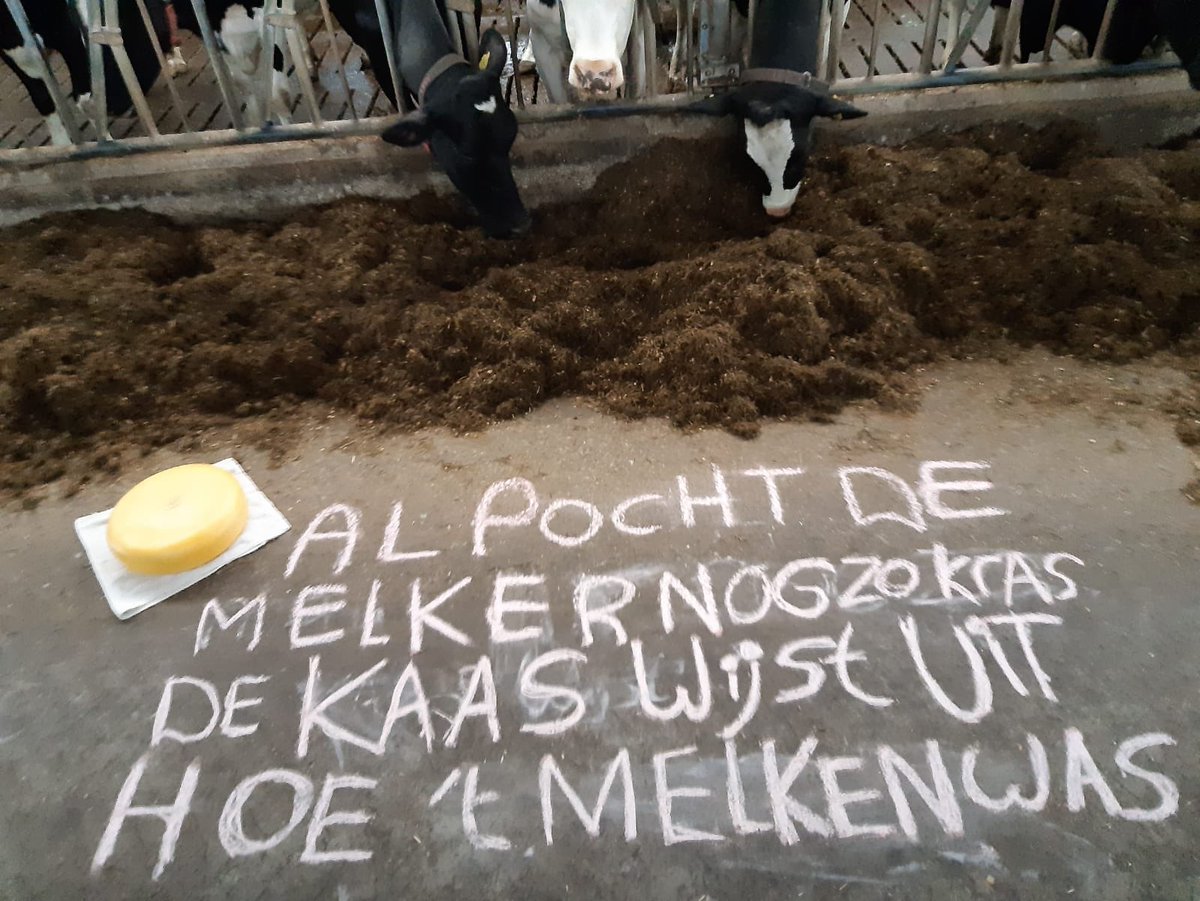 AL POCHT DE
MELKER NOG ZO KRAS
DE KAAS Wijst UIT
HOE 't MELKEN WAS